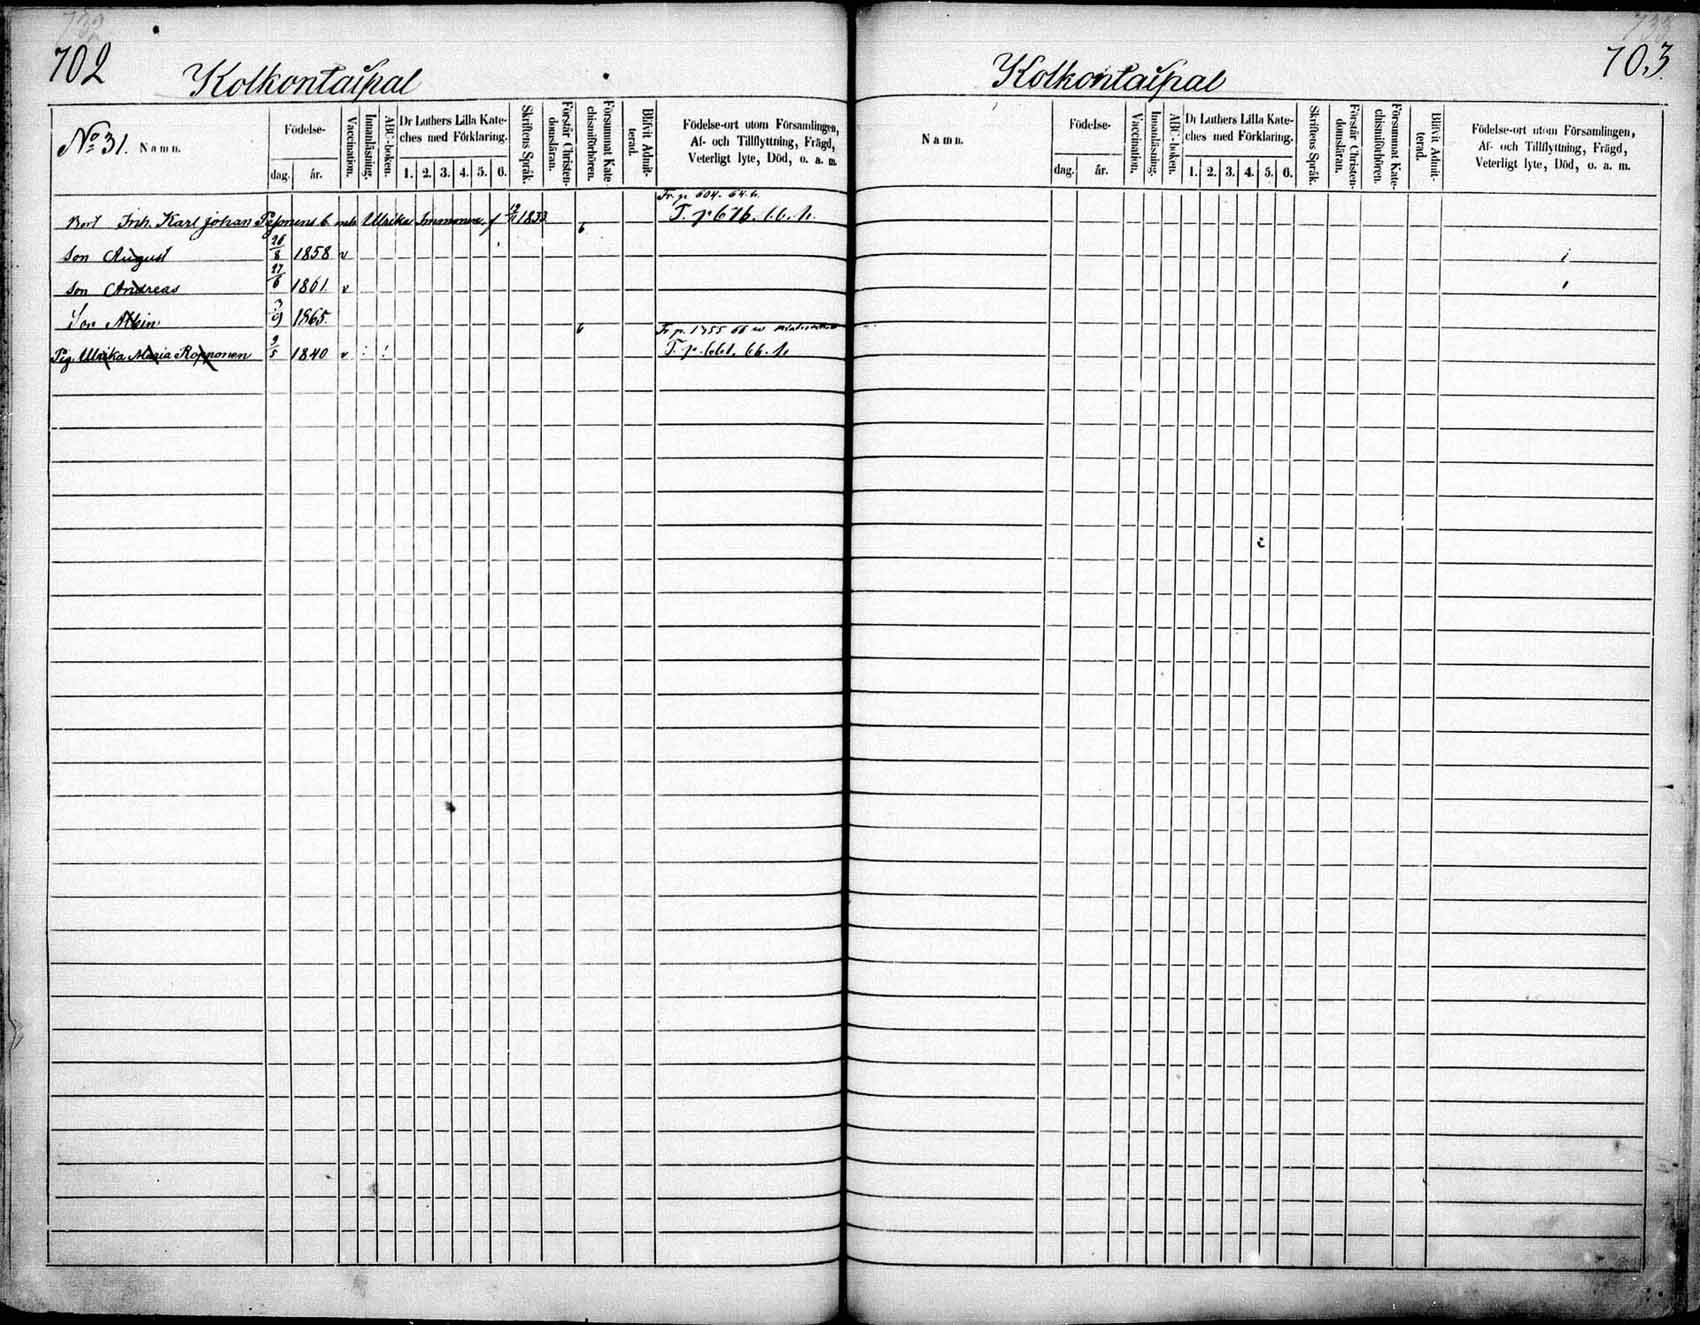 702
Kolkontaipal
No 31. Namn.
Födelse-
dag. år.
Vaccination.
Innanläsning.
ABC-boken.
Dr Luthers Lilla Kate-
ches med Förklaring.
1. 2. 3. 4. 5. 6.
Skriftens Språk.
Förstår Christen-
domsläran.
Försummat Kate
chismiförhören.
Blifvit Admit-
terad.
Födelse-ort utom Församlingen,
Af- och Tillflyttning, Frägd,
Veterligt lyte, Död, o. a. m.
Fr. p 604. 64. 6.
Karl Johan Ulrika Immonen f 1833 T. p 676.
Son August 26/8 1858 v
Son Andreas 27/6 1861. v
Son Albin 9 1865.
Fr. p. 1755 66
Pig. Ulrika Maria Ropponen 9/5 1840 v T. p 661. 66.
703.
Kolkontaipal
Namn.
Födelse-
dag. år.
Vaccination.
Innanläsning.
ABC-boken.
Dr Luthers Lilla Kate-
ches med Förklaring.
1. 2. 3. 4. 5. 6.
Skriftens Språk.
Förstår Christen-
domsläran.
Försummat Kate-
chismiförhören.
Blifvit Admit-
terad.
Födelse-ort utom Församlingen,
Af- och Tillflyttning, Frägd,
Veterligt lyte, Död, o. a. m.